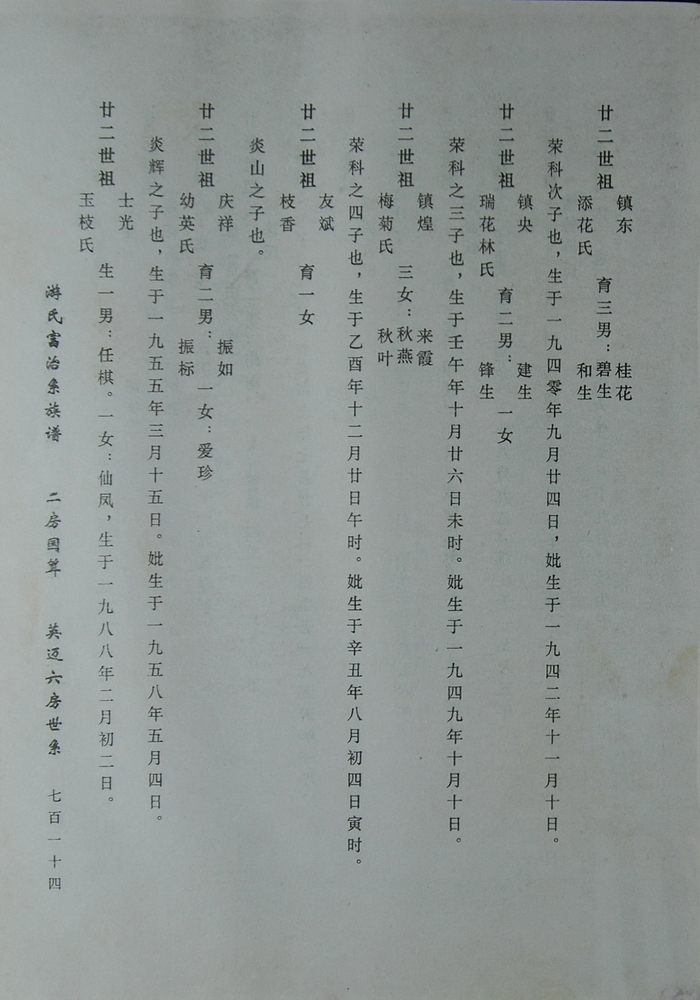 镇东 桂花
廿二世祖 育三男：碧生
添花氏 和生
荣科次子也，生于一九四零年九月廿四日，妣生于一九四二年十一月十日。
镇央 建生
廿二世祖 育二男： 一女
瑞花林氏 锋生
荣科之三子也，生于壬午年十月廿六日未时。妣生于一九四九年十月十日。
镇煌 来霞
廿二世祖 三女：秋燕
梅菊氏 秋叶
荣科之四子也，生于乙酉年十二月廿日午时。妣生于辛丑年八月初四日寅时。
友斌
廿二世祖 育一女
枝香
炎山之子也。
庆祥 振如
廿二世祖 育二男： 一女：爱珍
幼英氏 振标
炎辉之子也，生于一九五五年三月十五日。妣生于一九五八年五月四日。
士光
廿二世祖 生一男：任棋。一女：仙凤，生于一九八八年二月初二日。
玉枝氏
游氏富治系族谱 二房国 英迈六房世系 七百一十四